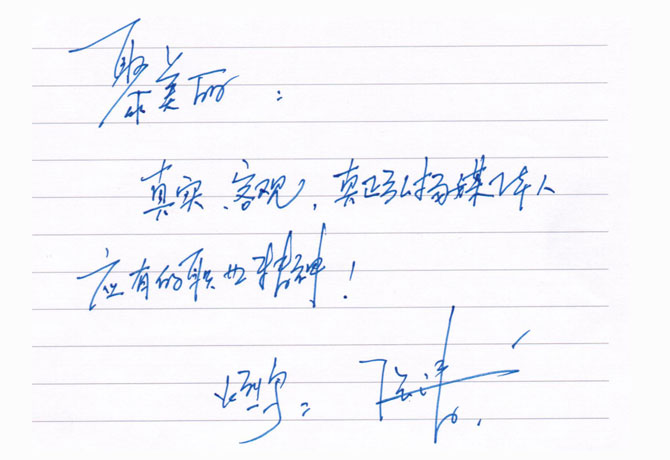 聚美丽：
真实、客观，真正弘扬媒体人
应有的职业精神！